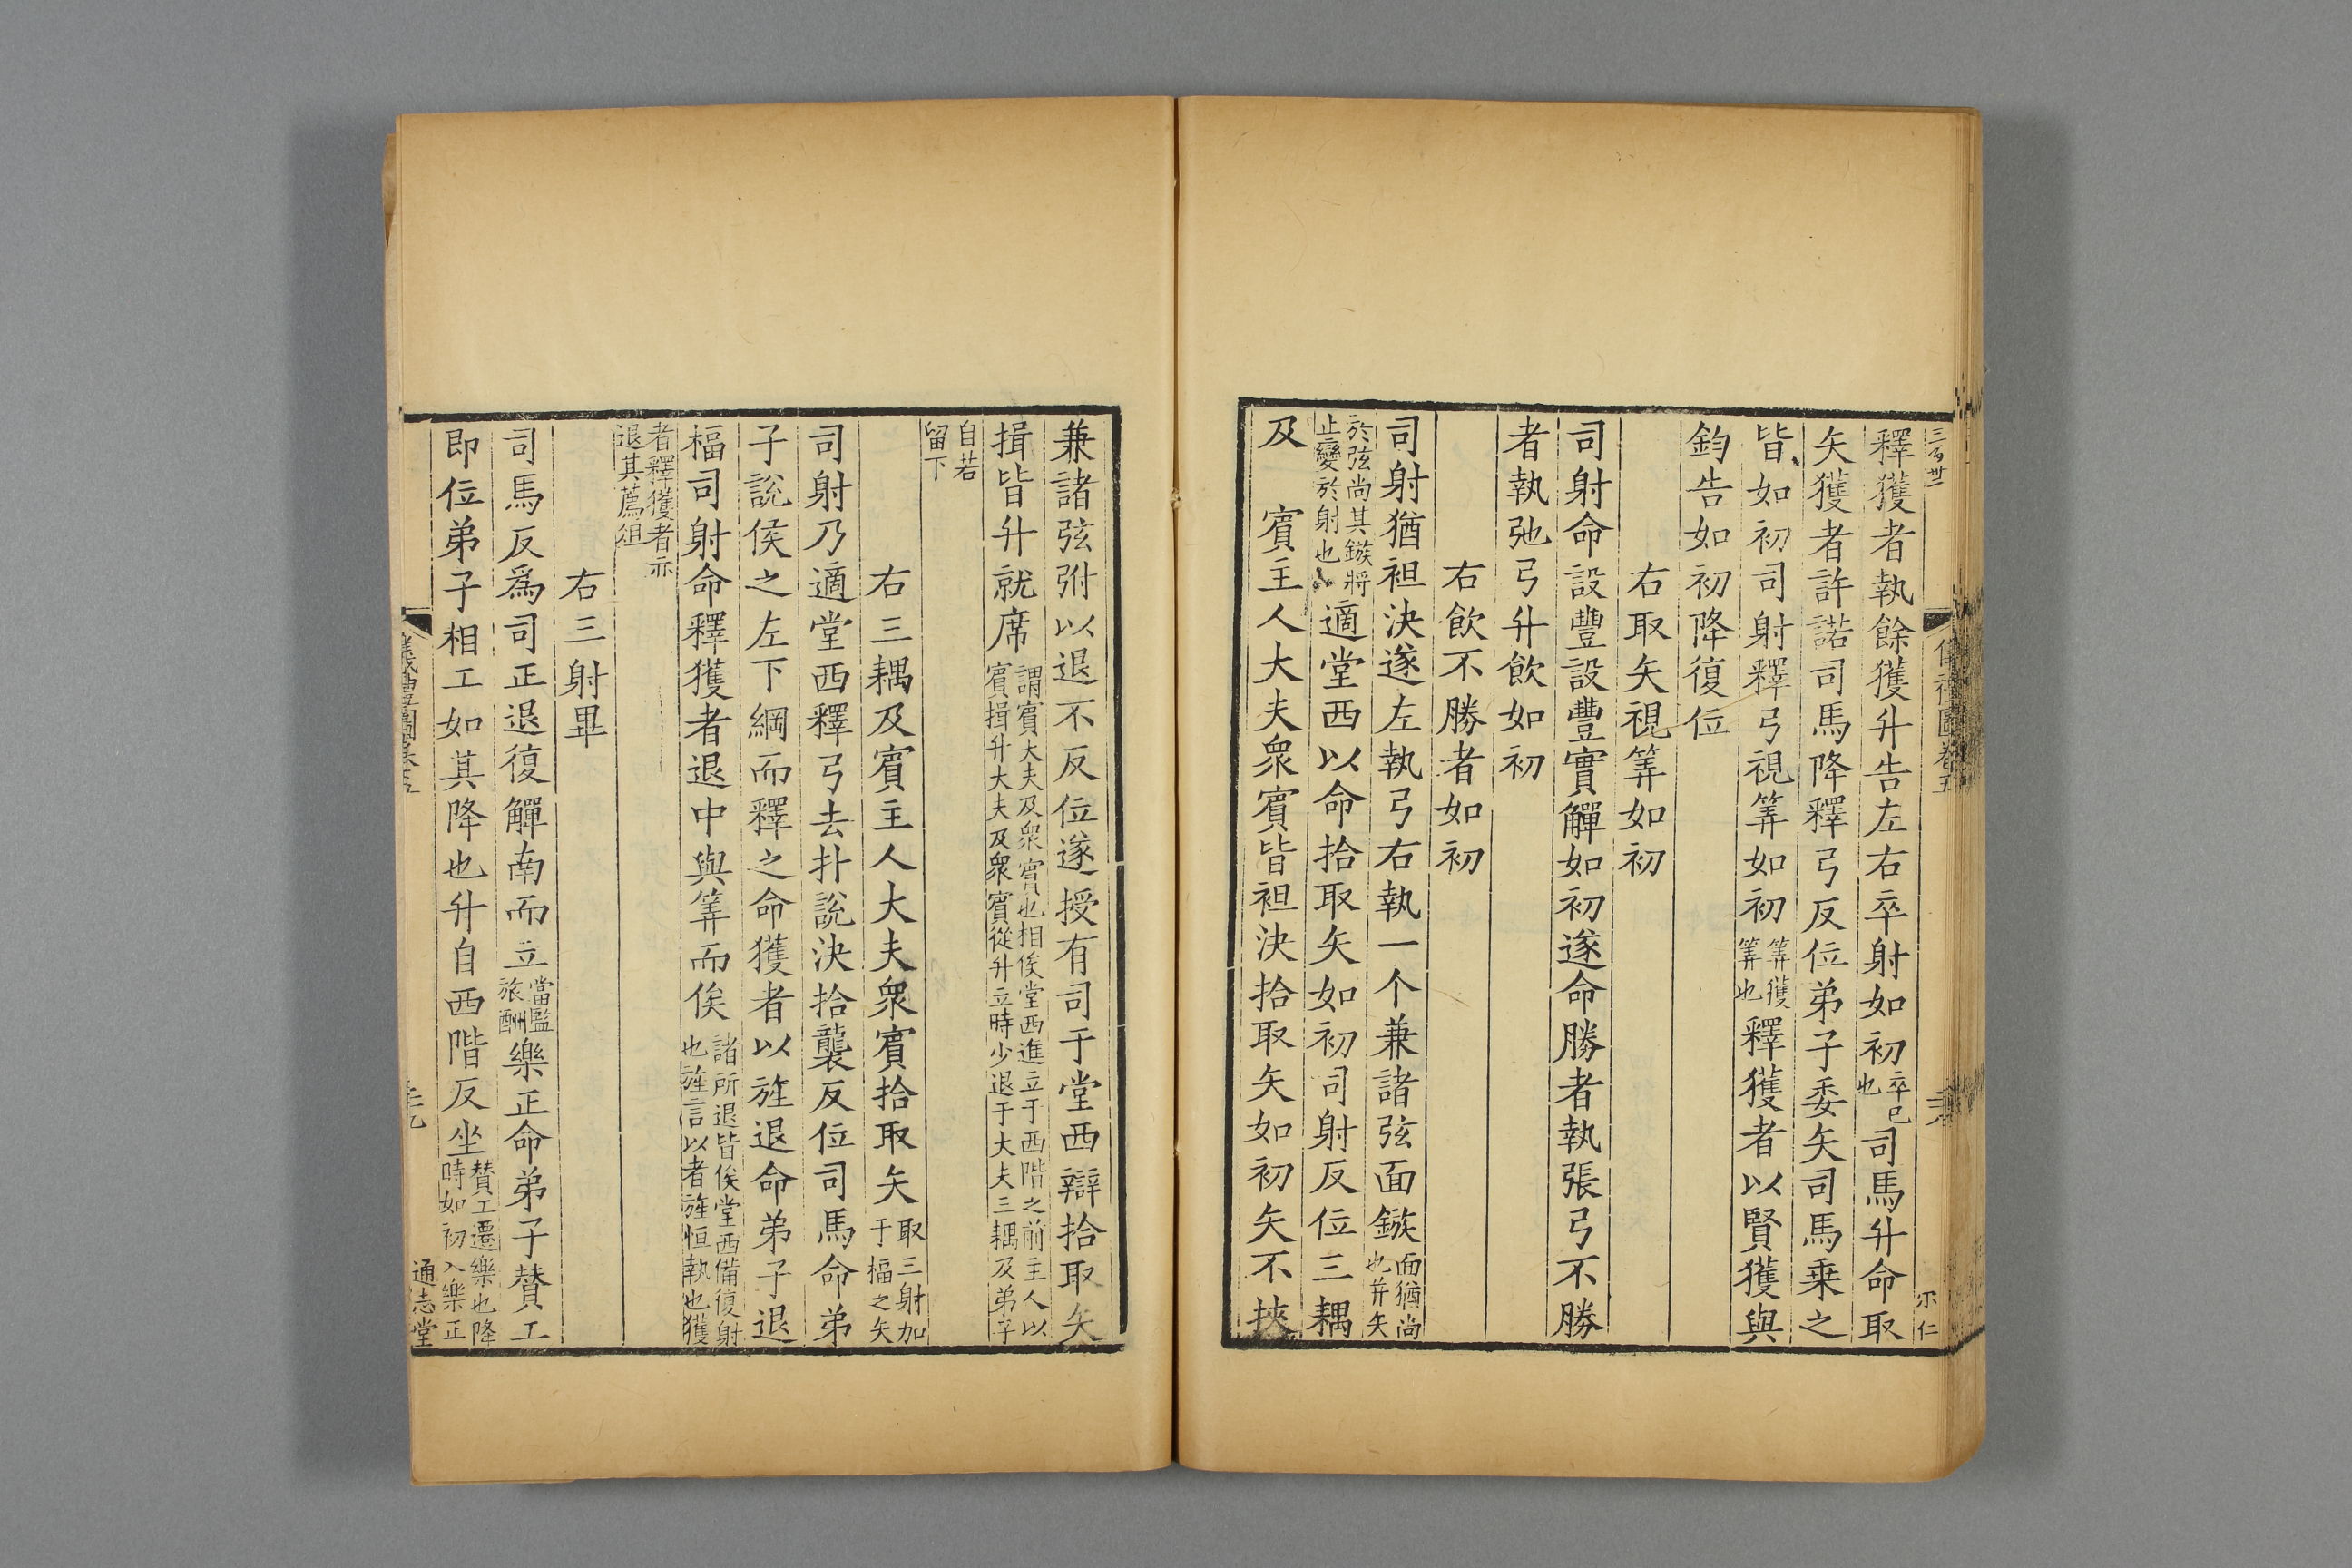 三百卅一
儀禮圖卷五
釋獲者執餘獲升告左右卒射如初卒已也司馬升命取
矢獲者許諾司馬降釋弓反位弟子委矢司馬乘之
皆如初司射釋弓視筭如初筭獲筭也釋獲者以賢獲與
鈞告如初降復位
右取矢視筭如初
司射命設豐設豐實觶如初遂命勝者執張弓不勝
者執弛弓升飲如初
右飲不勝者如初
司射猶袒決遂左執弓右執一个兼諸弦面鏃面猶尚也并矢
於弦尚其鏃將止變於射也適堂西以命拾取矢如初司射反位三耦
及　賓主人大夫衆賓皆袒決拾取矢如初矢不挾
兼諸弦弣以退不反位遂授有司于堂西辯拾取矢
揖皆升就席謂賓大夫及衆賓也相俟堂西進立于西階之前主人以賓揖升大夫及衆賓從升立時少退于大夫三耦及弟子
自若留下
右三耦及賓主人大夫衆賓拾取矢取三射加于楅之矢
司射乃適堂西釋弓去扑說決拾襲反位司馬命弟
子說侯之左下綱而釋之命獲者以旌退命弟子退
楅司射命釋獲者退中與筭而俟諸所退皆俟堂西備復射也旌言以者旌恒執也獲
者釋獲者亦退其薦俎
右三射畢
司馬反爲司正退復觶南而立當監旅酬樂正命弟子贊工
即位弟子相工如其降也升自西階反坐贊工遷樂也降時如初入樂正
儀禮圖卷五
通志堂